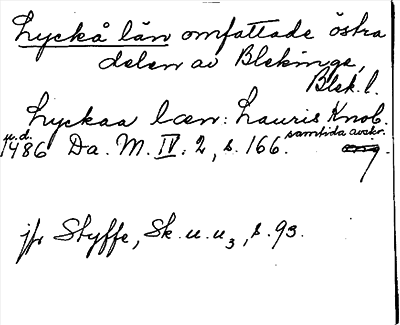 Lyckå län omfattade östra
delen av Blekinge,
Blek. l.
Lyckaa læn: Lauris Knob.
u.d. samtida avskr.
1486 Da. M. IV. 2, s. 166. orig.
jfr Styffe, Sk. u. u3, s. 93.